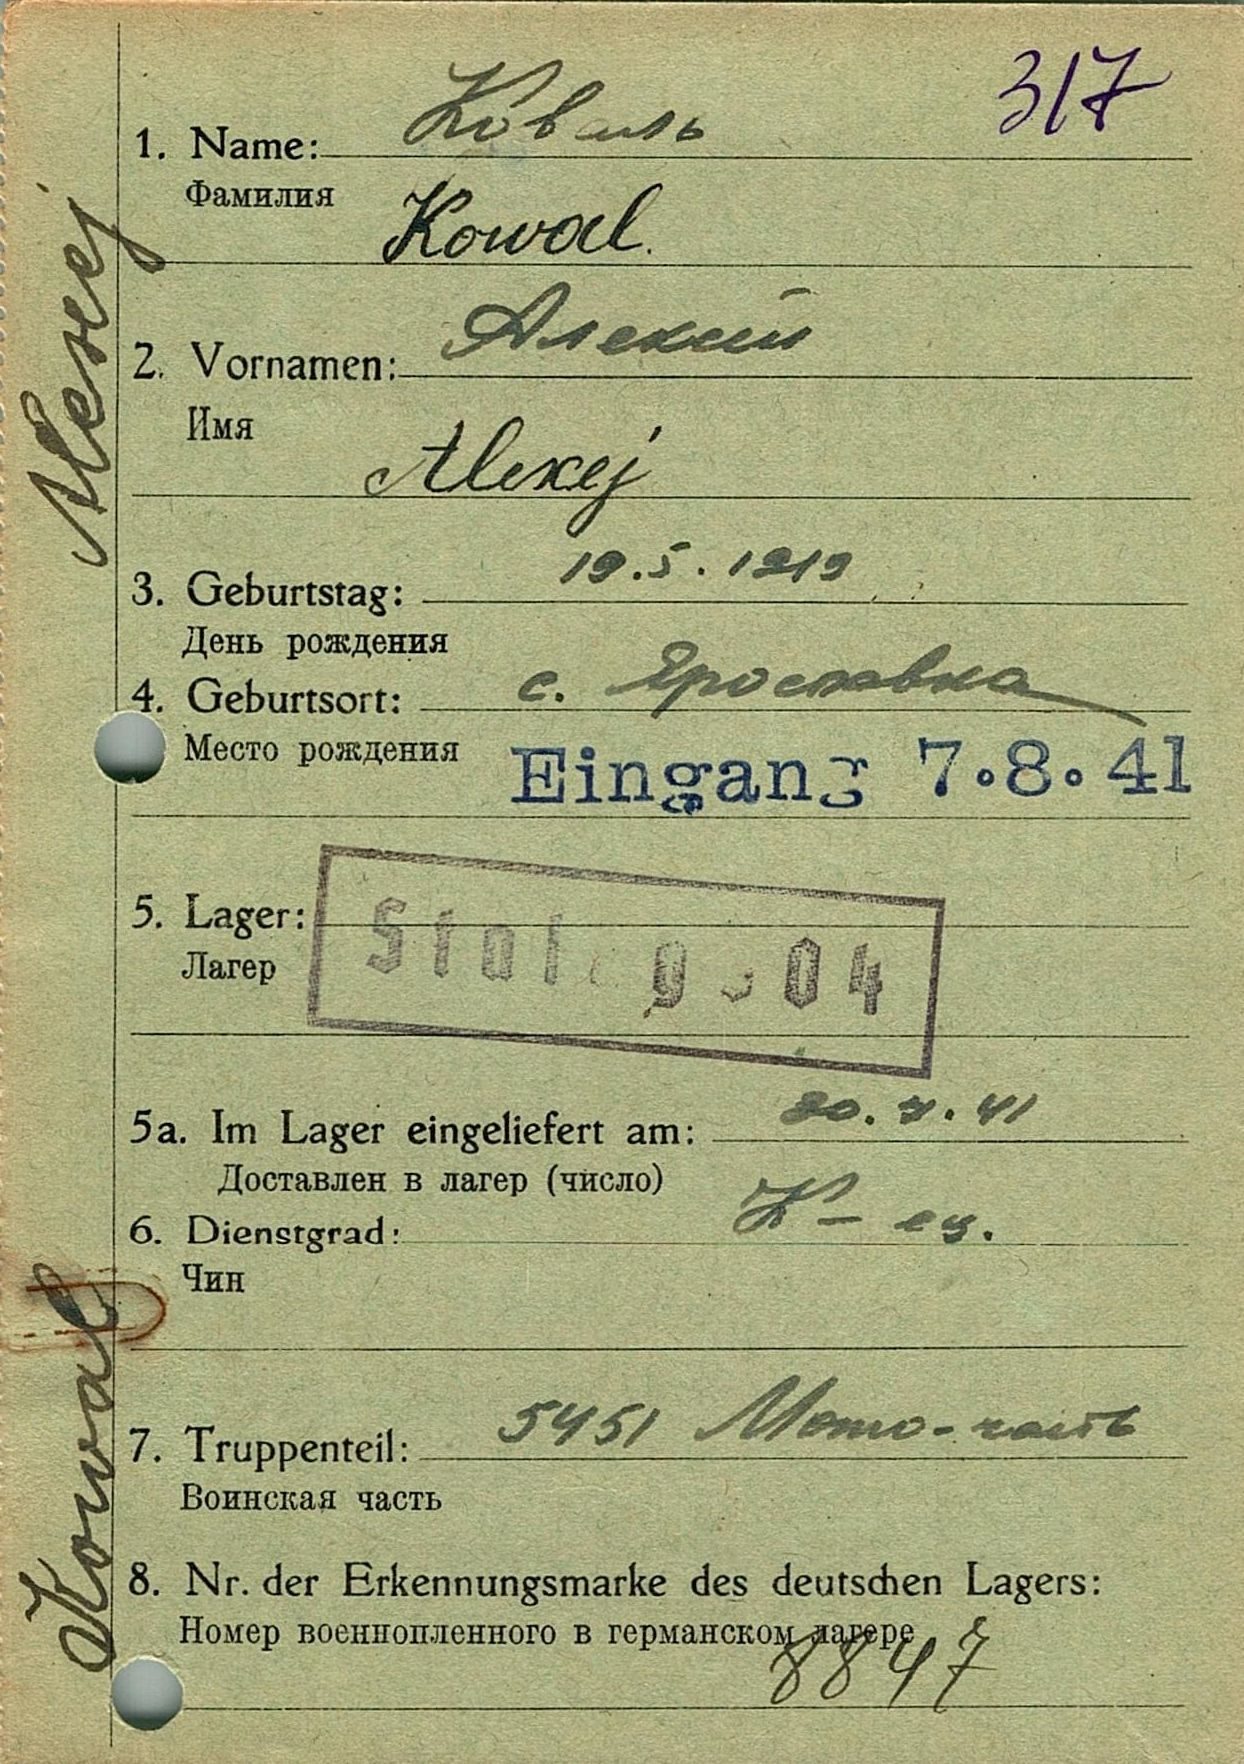 317
Коваль
1. Name:
Фамилия
Kowal.
Алексей
2. Vornamen:
Имя
Alexej
19.5.1919
3. Geburtstag:
День рождения
4. Geburtsort: с. Ярославка
Место рождения
Eingang 7.8.41
5. Lager:
Лагер
Stalag 304
5a. Im Lager eingeliefert am: 20.7.41
Доставлен в лагер (число)
6. Dienstgrad: К-ец.
Чин
7. Truppenteil: 5451 Мото-часть
Воинская часть
8. Nr. der Erkennungsmarke des deutschen Lagers:
Номер военнопленного в германском лагере
8847
Kowal Alexej